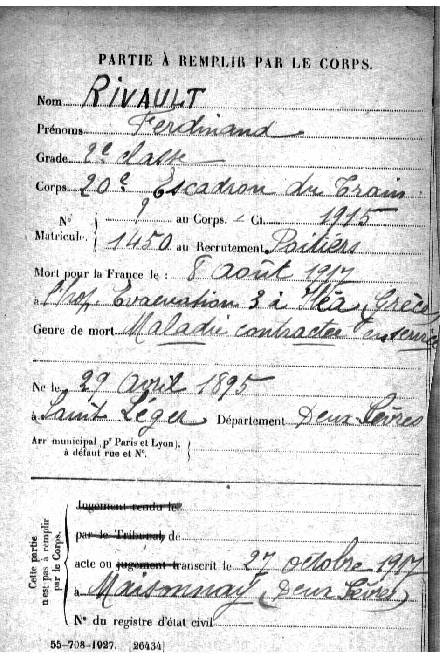 PARTIE À REMPLIR PAR LE CORPS.
Nom RIVAULT
Prénoms Ferdinand
Grade 2e classe
Corps 20e Escadron du Train
N° ? au Corps. – Cl. 1915
Matricule. 1450 au Recrutement Poitiers
Mort pour la France le : 8 août 1917
à l'hôp. Evacuation 3 à Itéa (Grèce)
Genre de mort Maladie contractée en service
Né le 29 Avril 1895
à Saint Léger Département Deux Sèvres
Arr municipal (pr Paris et Lyon),
à défaut rue et N°.
Cette partie
n'est pas à remplir
par le Corps.
Jugement rendu le
par le Tribunal de
acte ou jugement transcrit le 27 octobre 1917
à Maisonnay (Deux Sèvres)
N° du registre d'état civil
55-708-1927. [26434]